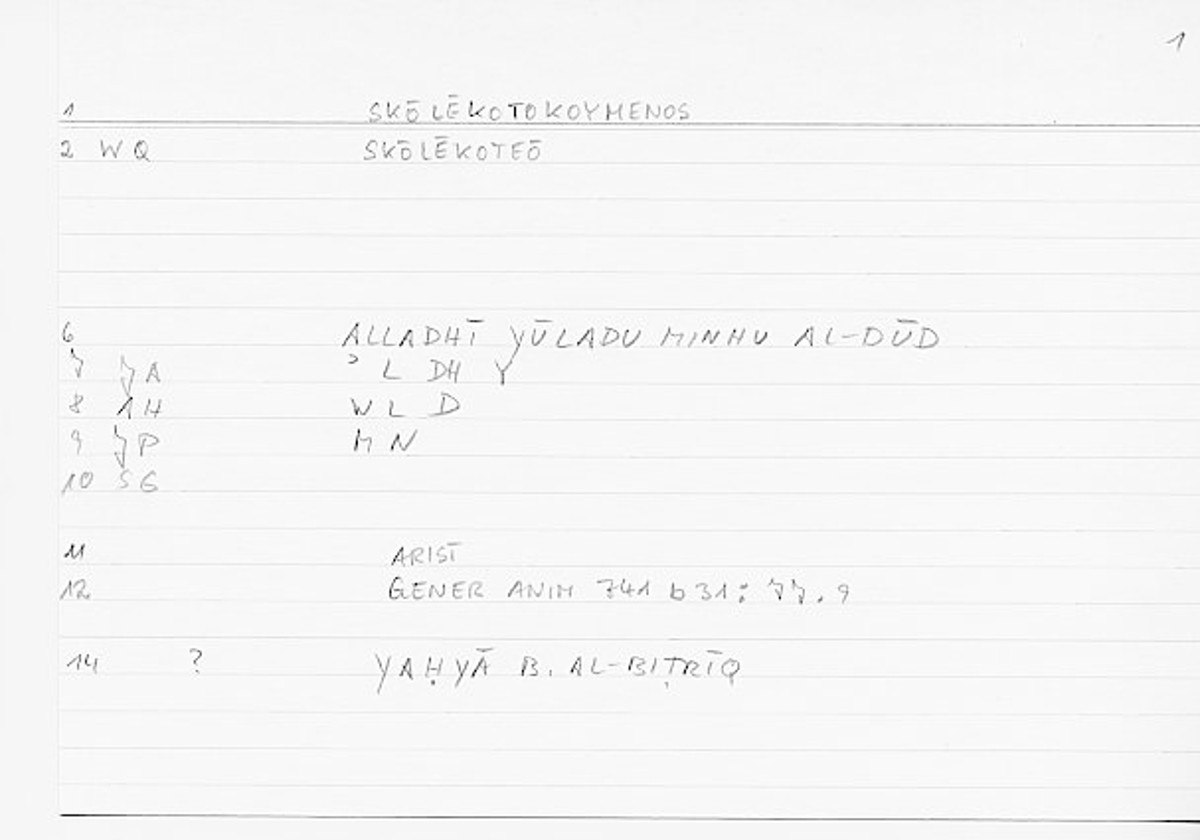 1
1 SKŌLĒKOTOKOYMENOS
2 WQ SKŌLĒKOTEŌ
6 ALLADHĪ YŪLADU MINHU AL-DŪD
7 7A ʾ L DH Y
8 1H W L D
9 7P M N
10 SG
11 ARIST
12 GENER ANIM 741 b 31: 77.9
14 ? YAḤYĀ B. AL-BIṬRĪQ